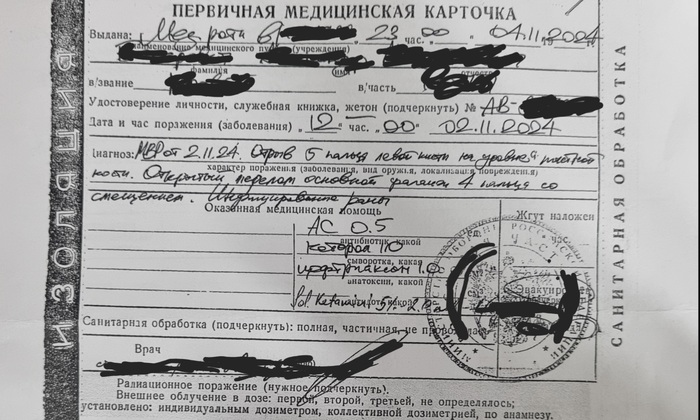 ПЕРВИЧНАЯ МЕДИЦИНСКАЯ КАРТОЧКА
Выдана: Медрота 23 час. 00 04.11.2024
наименование медицинского пункта (учреждения)
фамилия (имя)
в/звание в/часть
Удостоверение личности, служебная книжка, жетон (подчеркнуть) № АВ-
Дата и час поражения (заболевания) „12" час. „00" 02.11.2024
Диагноз: МВР от 2.11.24. Отрыв 5 пальца левой кисти на уровне пястной
характер поражения (заболевания, вид оружия, локализация повреждения)
кости. Открытый перелом основной фаланги 4 пальца со
смещением. Инфицирование раны
Оказанная медицинская помощь
Жгут наложен
АС 0.5
антибиотик, какой
1.0
сыворотка, какая
цефтриаксон 1.0
анатоксин, какой
Sol.
Эвакуир
Санитарная обработка (подчеркнуть): полная, частичная, не
Врач
Радиационное поражение (нужное подчеркнуть).
Внешнее облучение в дозе: первой, второй, третьей, не определялось;
установлено: индивидуальным дозиметром, коллективной дозиметрией, по анамнезу.
ИЗОЛАЦИЯ
САНИТАРНАЯ ОБРАБОТКА